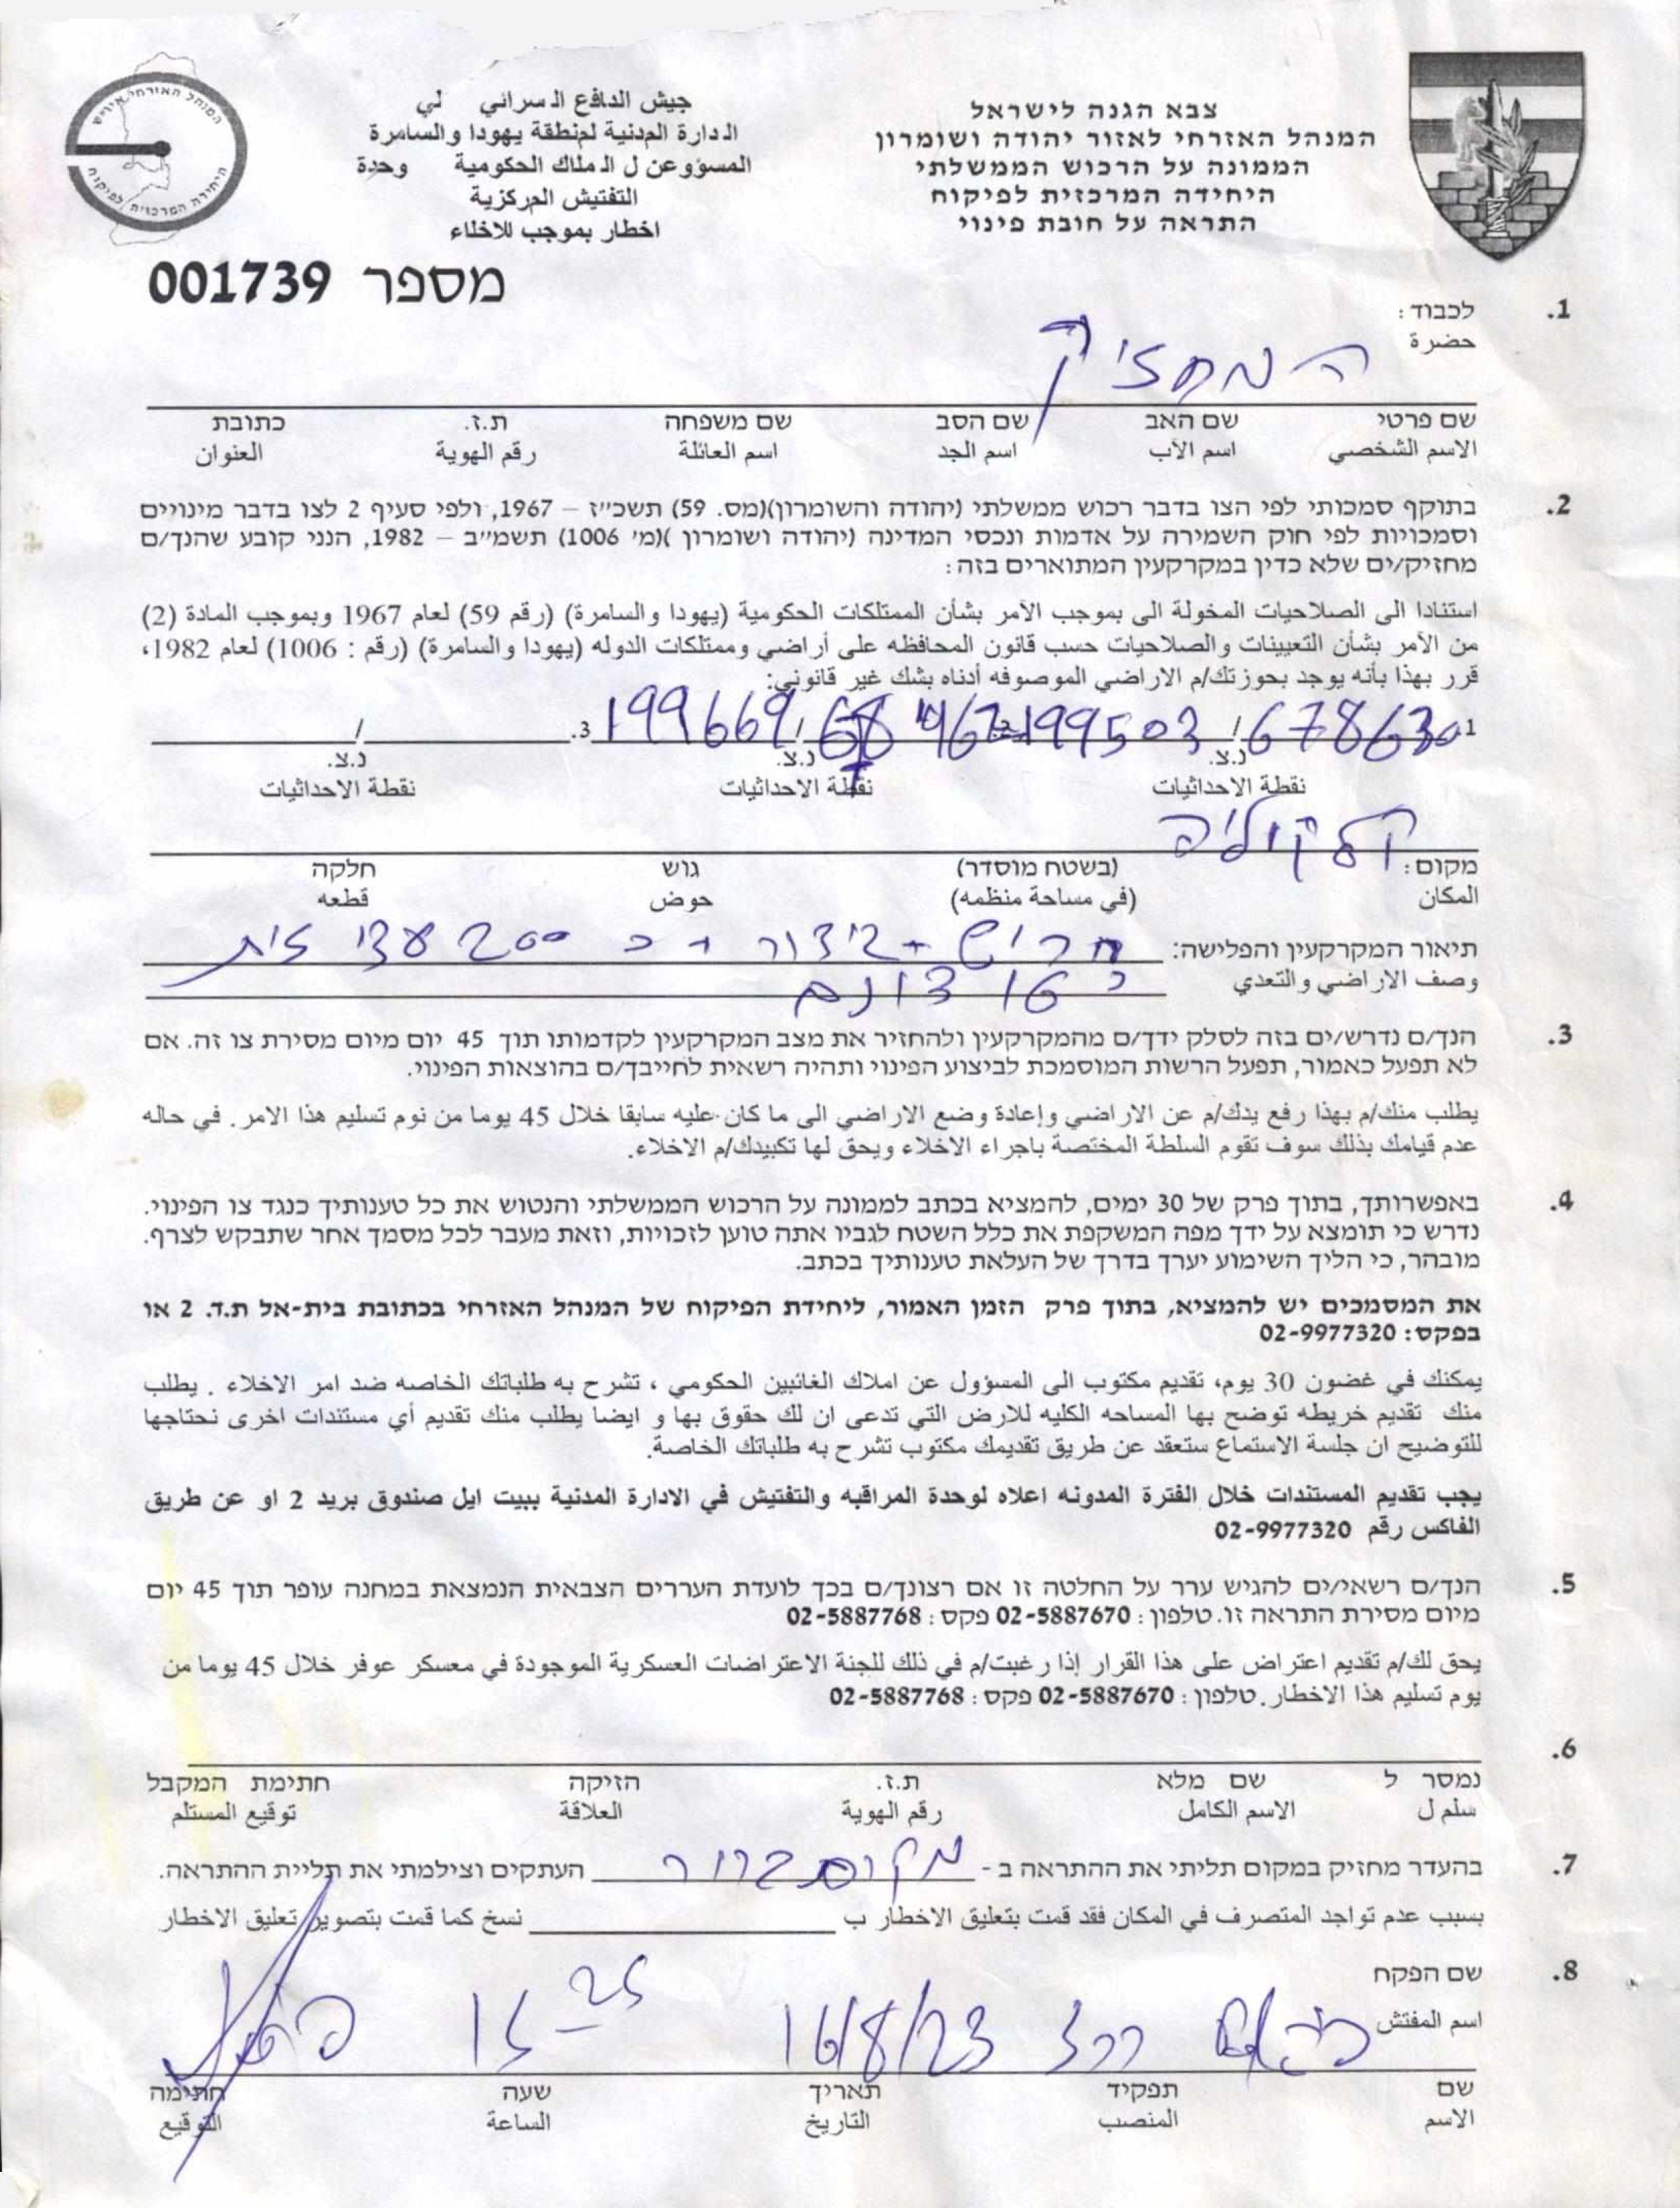 צבא הגנה לישראל
המנהל האזרחי לאזור יהודה ושומרון
הממונה על הרכוש הממשלתי
היחידה המרכזית לפיקוח
התראה על חובת פינוי
جيش الدافع ال سرائي لي
ال دارة المدنية لمنطقة يهودا والسامرة
المسؤوعن ل ال ملاك الحكومية وحدة
التفتيش المركزية
اخطار بموجب للاخلاء
המנהל האזרחי איו"ש
היחידה המרכזית לפיקוח
מספר 001739
1. לכבוד:
حضرة
המחזיק
שם פרטי שם האב שם הסב שם משפחה ת.ז. כתובת
الاسم الشخصي اسم الآب اسم الجد اسم العائلة رقم الهوية العنوان
2. בתוקף סמכותי לפי הצו בדבר רכוש ממשלתי (יהודה והשומרון)(מס. 59) תשכ״ז – 1967, ולפי סעיף 2 לצו בדבר מינויים
וסמכויות לפי חוק השמירה על אדמות ונכסי המדינה (יהודה ושומרון )(מ׳ 1006) תשמ״ב – 1982, הנני קובע שהנך/ם
מחזיק/ים שלא כדין במקרקעין המתוארים בזה:
استنادا الى الصلاحيات المخولة الى بموجب الآمر بشأن الممتلكات الحكومية (يهودا والسامرة) (رقم 59) لعام 1967 وبموجب المادة (2)
من الآمر بشأن التعيينات والصلاحيات حسب قانون المحافظه على أراضي وممتلكات الدوله (يهودا والسامرة) (رقم : 1006) لعام 1982،
قرر بهذا بأنه يوجد بحوزتك/م الاراضي الموصوفه أدناه بشك غير قانوني:
1 678630 / 199503 / 199669 3. /
נ.צ. נ.צ. נ.צ.
نقطة الاحداثيات نقطة الاحداثيات نقطة الاحداثيات
קלקוליה
מקום: (בשטח מוסדר) גוש חלקה
المكان (في مساحة منظمه) حوض قطعه
תיאור המקרקעין והפלישה: חריש + גידור + כ 200 עצי זית
وصف الاراضي والتعدي דונם
3. הנך/ם נדרש/ים בזה לסלק ידך/ם מהמקרקעין ולהחזיר את מצב המקרקעין לקדמותו תוך 45 יום מיום מסירת צו זה. אם
לא תפעל כאמור, תפעל הרשות המוסמכת לביצוע הפינוי ותהיה רשאית לחייבך/ם בהוצאות הפינוי.
يطلب منك/م بهذا رفع يدك/م عن الاراضي وإعادة وضع الاراضي الى ما كان عليه سابقا خلال 45 يوما من نوم تسليم هذا الامر. في حاله
عدم قيامك بذلك سوف تقوم السلطة المختصة باجراء الاخلاء ويحق لها تكبيدك/م الاخلاء.
4. באפשרותך, בתוך פרק של 30 ימים, להמציא בכתב לממונה על הרכוש הממשלתי והנטוש את כל טענותיך כנגד צו הפינוי.
נדרש כי תומצא על ידך מפה המשקפת את כלל השטח לגביו אתה טוען לזכויות, וזאת מעבר לכל מסמך אחר שתבקש לצרף.
מובהר, כי הליך השימוע יערך בדרך של העלאת טענותיך בכתב.
את המסמכים יש להמציא, בתוך פרק הזמן האמור, ליחידת הפיקוח של המנהל האזרחי בכתובת בית-אל ת.ד. 2 או
בפקס: 02-9977320
يمكنك في غضون 30 يوم، تقديم مكتوب الى المسؤول عن املاك الغائبين الحكومي ، تشرح به طلباتك الخاصه ضد امر الاخلاء . يطلب
منك تقديم خريطه توضح بها المساحه الكليه للارض التي تدعى ان لك حقوق بها و ايضا يطلب منك تقديم أي مستندات اخرى نحتاجها
للتوضيح ان جلسة الاستماع ستعقد عن طريق تقديمك مكتوب تشرح به طلباتك الخاصة.
يجب تقديم المستندات خلال الفترة المدونه اعلاه لوحدة المراقبه والتفتيش في الادارة المدنية ببيت ايل صندوق بريد 2 او عن طريق
الفاكس رقم 02-9977320
5. הנך/ם רשאי/ים להגיש ערר על החלטה זו אם רצונך/ם בכך לועדת העררים הצבאית הנמצאת במחנה עופר תוך 45 יום
מיום מסירת התראה זו. טלפון: 02-5887670 פקס: 02-5887768
يحق لك/م تقديم اعتراض على هذا القرار إذا رغبت/م في ذلك للجنة الاعتراضات العسكرية الموجودة في معسكر عوفر خلال 45 يوما من
يوم تسليم هذا الاخطار. טלפון: 02-5887670 פקס: 02-5887768
6.
נמסר ל שם מלא ת.ז. הזיקה חתימת המקבל
سلم ل الاسم الكامل رقم الهوية العلاقة توقيع المستلم
7. בהעדר מחזיק במקום תליתי את ההתראה ב - מקום ברור העתקים וצילמתי את תליית ההתראה.
بسبب عدم تواجد المتصرف في المكان فقد قمت بتعليق الاخطار ب نسخ كما قمت بتصوير تعليق الاخطار
8. שם הפקח
اسم المفتش
16/8/23
שם תפקיד תאריך שעה חתימה
الاسم المنصب التاريخ الساعة التوقيع